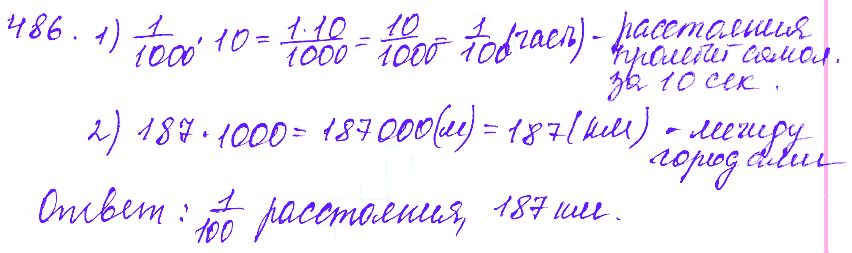 486. 1) 1/1000 · 10 = 1·10/1000 = 10/1000 = 1/100 (часть) - расстояния
пролетит самол.
за 10 сек.
2) 187 · 1000 = 187000 (м) = 187 (км) - между
городами
Ответ: 1/100 расстояния, 187 км.